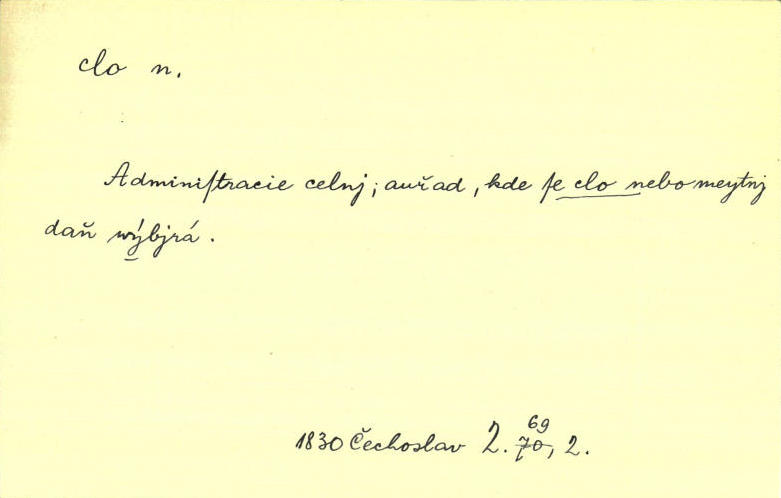 clo n.
Adminiſtracie celnj; auřad, kde ſe clo nebo meytnj
daň wýbjrá.
69
1830 Čechoslav 2. 70, 2.